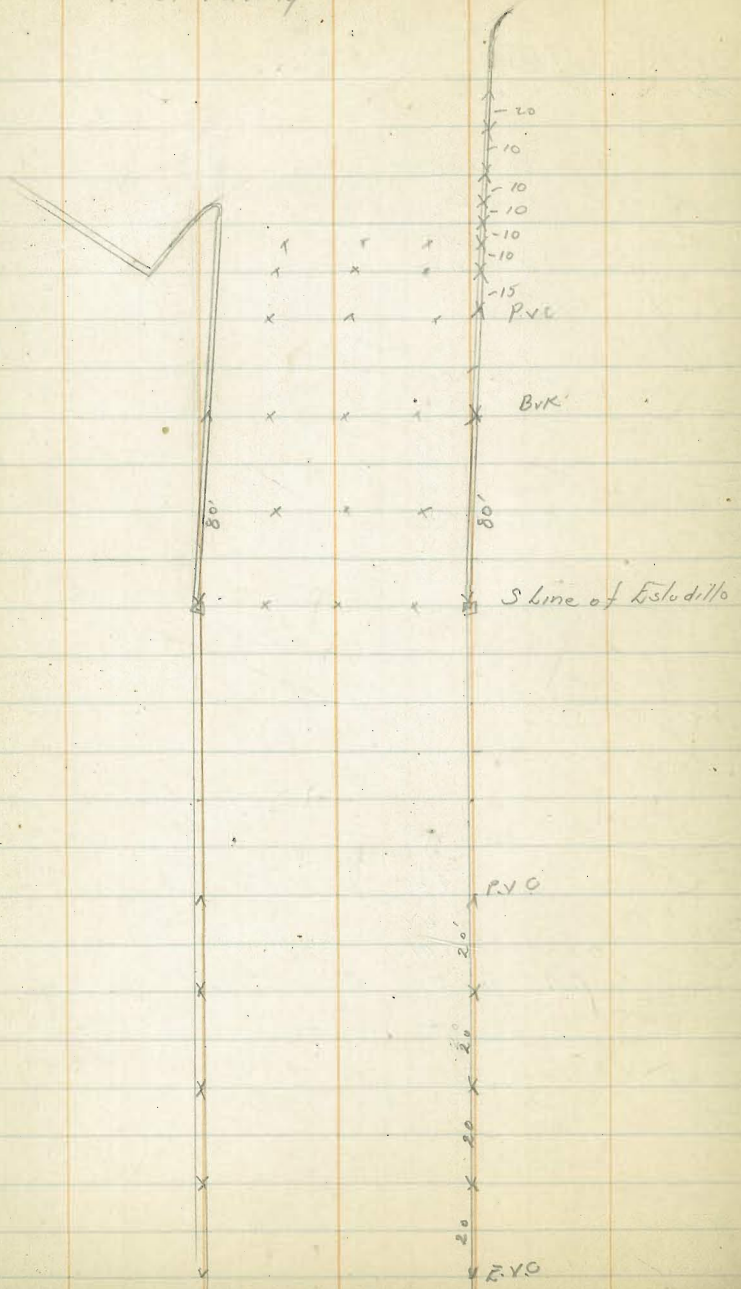 - 20
- 10
- 10
- 10
- 10
- 10
- 15
P.V.C
BVK
80'
80'
S Line of Estudillo
P.V.C
20'
20
20
20
E.V.C